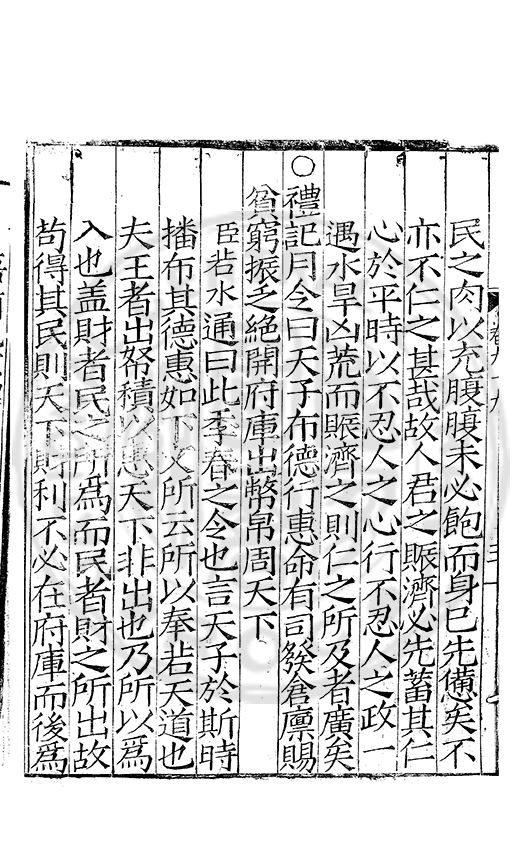 民之肉以充腹腹未必飽而身已先憊矣不
亦不仁之甚哉故人君之賑濟必先蓄其仁
心於平時以不忍人之心行不忍人之政一
遇水旱凶荒而賑濟之則仁之所及者廣矣
○禮記月令曰天子布德行惠命有司發倉廩賜
貧窮振乏絕開府庫出幣帛周天下
臣若水通曰此季春之令也言天子於斯時
播布其德惠如下文所云所以奉若天道也
夫王者出帑積以惠天下非出也乃所以爲
入也盖財者民之所爲而民者財之所出故
苟得其民則天下財利不必在府庫而後爲